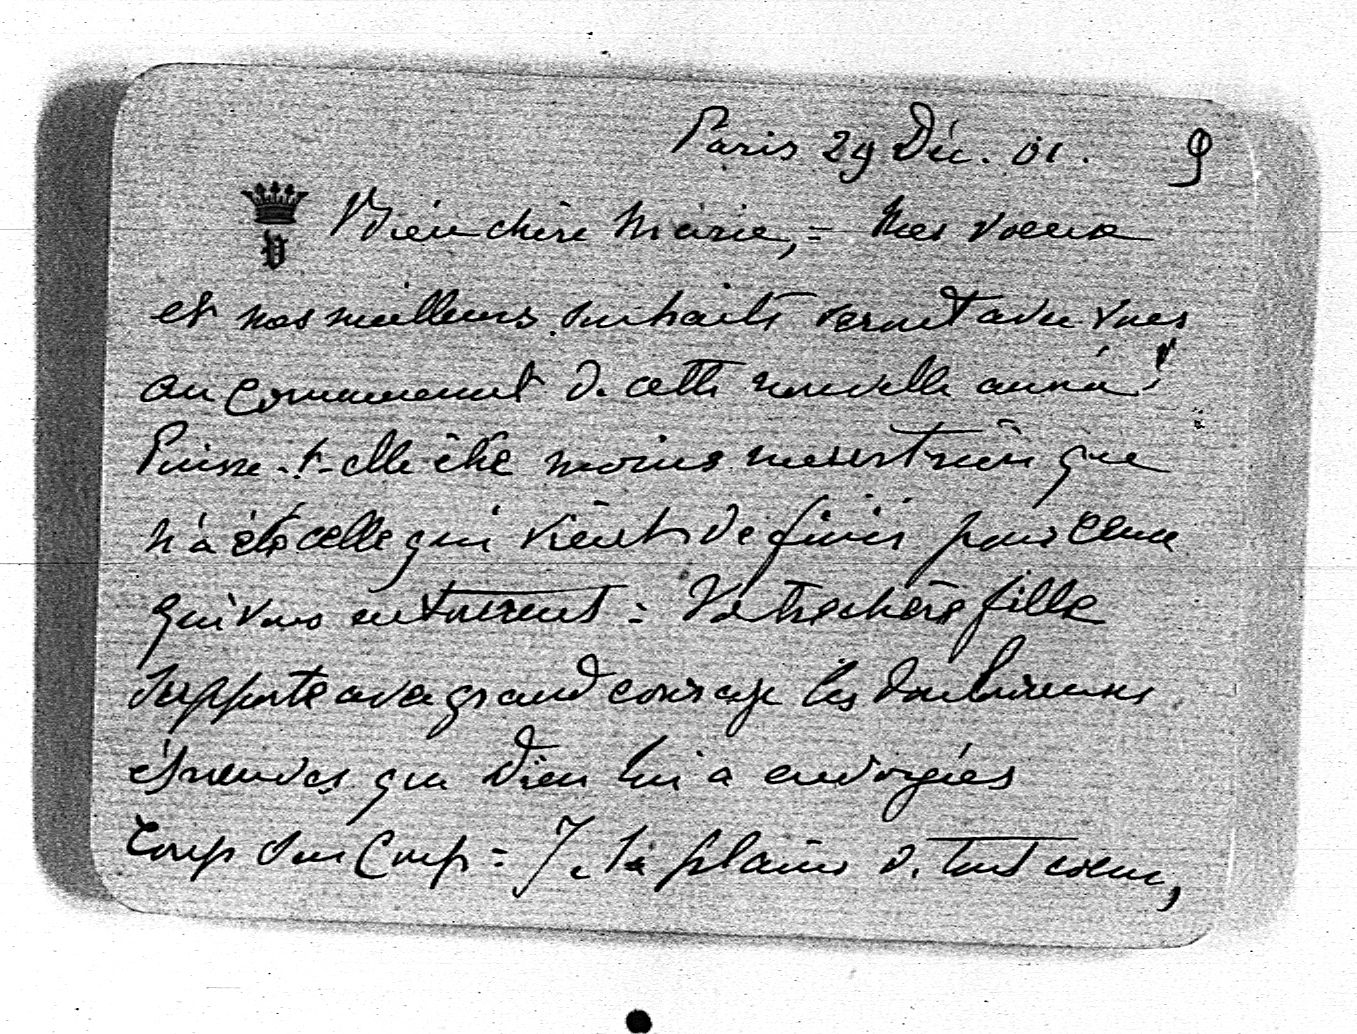 Paris 29 Déc. 01. 9
V Bien chère Marie, = Mes voeux
et nos meilleurs souhaits seront avec vous
au commencement de cette nouvelle année!
Puisse-t-elle être moins meurtrière que
n'a été celle qui vient de finir pour ceux
qui vous entourent = Votre chère fille
supporte avec grand courage les douloureuses
épreuves que Dieu lui a envoyées
coup sur coup = Je la plains de tout coeur,